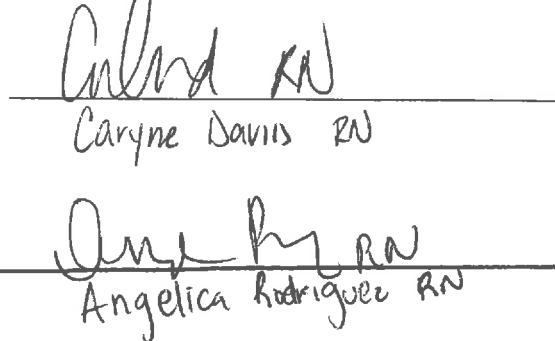 RN
Caryne Daviis RN
RN
Angelica Rodriguez RN